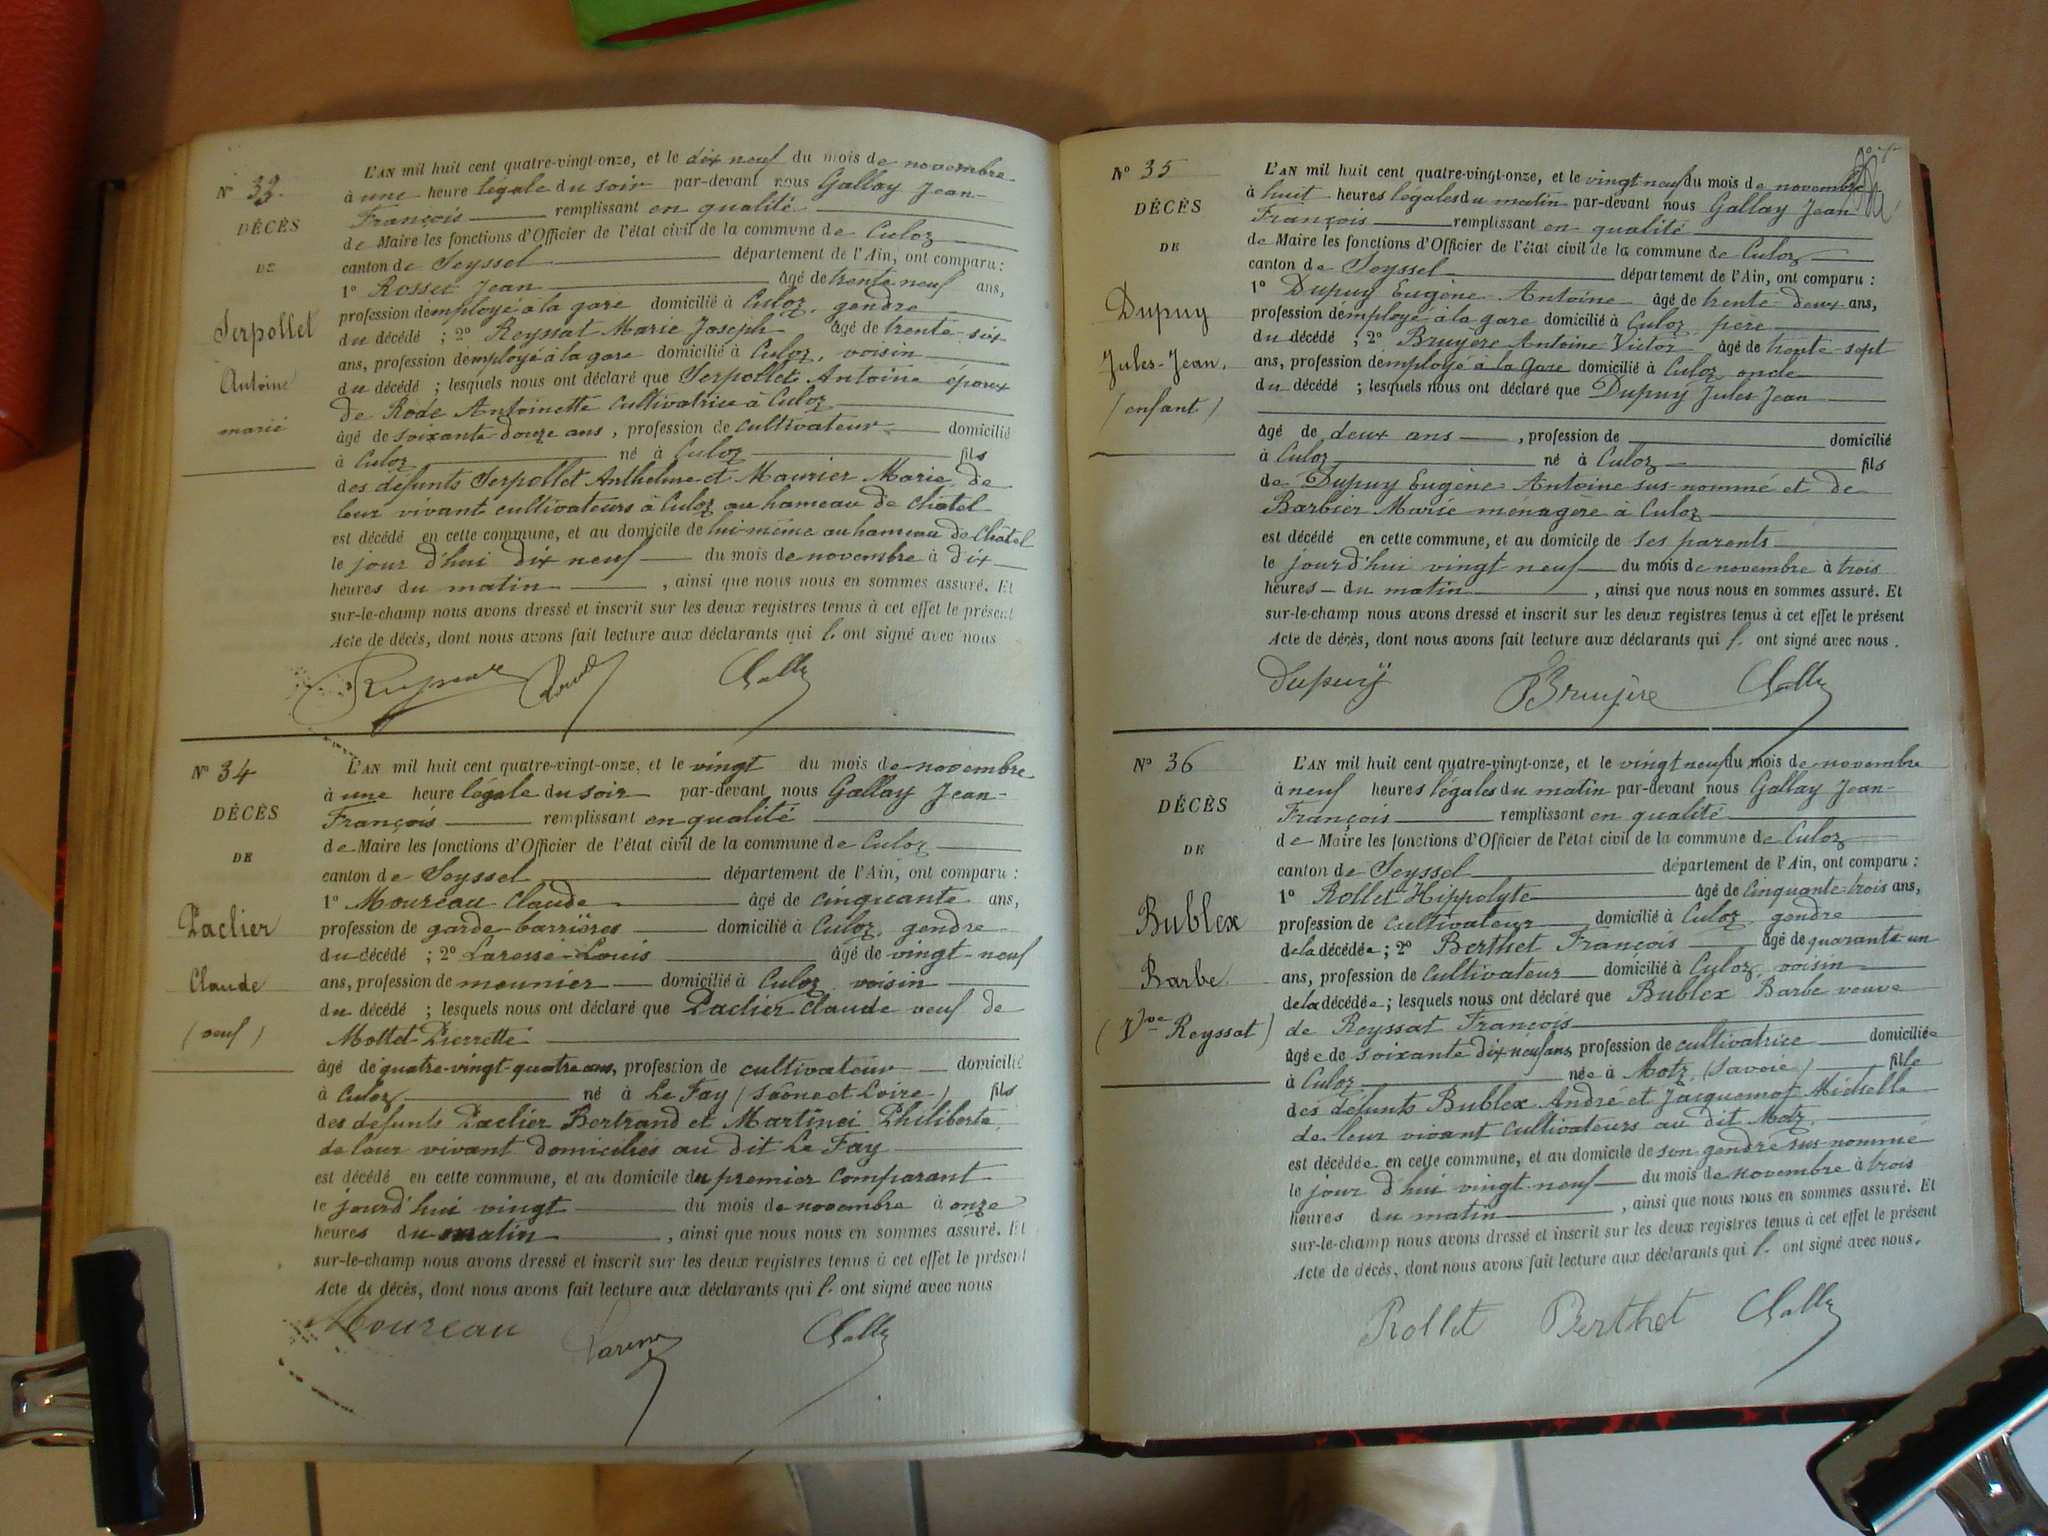 N° 33.
DÉCÈS
DE
Serpollet
Antoine
marié
L'AN mil huit cent quatre-vingt-onze, et le dix neuf du mois de novembre
à une heure légale du soir par-devant nous Gallay Jean-
François remplissant en qualité
de Maire les fonctions d'Officier de l'état civil de la commune de Culoz
canton de Seyssel département de l'Ain, ont comparu :
1° Rosset Jean âgé de trente neuf ans,
profession d'employé à la gare domicilié à Culoz, gendre
du décédé ; 2° Reyssat Marie Joseph âgé de trente-six
ans, profession d'employé à la gare domicilié à Culoz, voisin
du décédé ; lesquels nous ont déclaré que Serpollet Antoine époux
de Rode Antoinette cultivatrice à Culoz
âgé de soixante-douze ans, profession de cultivateur domicilié
à Culoz né à Culoz fils
des défunts Serpollet Anthelme et Maurier Marie de
leur vivant cultivateurs à Culoz au hameau de Châtel
est décédé en cette commune, et au domicile de lui-même au hameau de Châtel
le jour d'hui dix neuf du mois de novembre à dix
heures du matin , ainsi que nous nous en sommes assuré. Et
sur-le-champ nous avons dressé et inscrit sur les deux registres tenus à cet effet le présent
Acte de décès, dont nous avons fait lecture aux déclarants qui l. ont signé avec nous
N° 34
DÉCÈS
DE
Paclier
Claude
(veuf)
L'AN mil huit cent quatre-vingt-onze, et le vingt du mois de novembre
à une heure légale du soir par-devant nous Gallay Jean-
François remplissant en qualité
de Maire les fonctions d'Officier de l'état civil de la commune de Culoz
canton de Seyssel département de l'Ain, ont comparu :
1° Moureau Claude âgé de cinquante ans,
profession de garde-barrières domicilié à Culoz, gendre
du décédé ; 2° Laresse Louis âgé de vingt-neuf
ans, profession de meunier domicilié à Culoz voisin
du décédé ; lesquels nous ont déclaré que Paclier Claude veuf de
Mottet Pierrette
âgé de quatre-vingt-quatre ans, profession de cultivateur domicilié
à Culoz né à Le Fay (Saône et Loire) fils
des défunts Paclier Bertrand et Martinei Philiberte,
de leur vivant domiciliés au dit Le Fay
est décédé en cette commune, et au domicile du premier comparant
le jourd'hui vingt du mois de novembre à onze
heures du matin , ainsi que nous nous en sommes assuré. Et
sur-le-champ nous avons dressé et inscrit sur les deux registres tenus à cet effet le présent
Acte de décès, dont nous avons fait lecture aux déclarants qui l. ont signé avec nous
Moureau
N° 35
DÉCÈS
DE
Dupuy
Jules-Jean.
(enfant)
L'AN mil huit cent quatre-vingt-onze, et le vingt neuf du mois de novembre
à huit heures légales du matin par-devant nous Gallay Jean
François remplissant en qualité
de Maire les fonctions d'Officier de l'état civil de la commune de Culoz
canton de Seyssel département de l'Ain, ont comparu :
1° Dupuy Eugène Antoine âgé de trente-deux ans,
profession d'employé à la gare domicilié à Culoz père
du décédé ; 2° Bruyère Antoine Victor âgé de trente-sept
ans, profession d'employé à la Gare domicilié à Culoz oncle
du décédé ; lesquels nous ont déclaré que Dupuy Jules Jean
âgé de deux ans , profession de domicilié
à Culoz né à Culoz fils
de Dupuy Eugène Antoine sus-nommé et de
Barbier Marie ménagère à Culoz
est décédé en cette commune, et au domicile de ses parents
le jourd'hui vingt neuf du mois de novembre à trois
heures du matin , ainsi que nous nous en sommes assuré. Et
sur-le-champ nous avons dressé et inscrit sur les deux registres tenus à cet effet le présent
Acte de décès, dont nous avons fait lecture aux déclarants qui l. ont signé avec nous.
Dupuÿ Bruyère
N° 36
DÉCÈS
DE
Bublex
Barbe
(Vve Reyssat)
L'AN mil huit cent quatre-vingt-onze, et le vingt neuf du mois de novembre
à neuf heures légales du matin par-devant nous Gallay Jean-
François remplissant en qualité
de Maire les fonctions d'Officier de l'état civil de la commune de Culoz
canton de Seyssel département de l'Ain, ont comparu :
1° Rollet Hippolyte âgé de cinquante-trois ans,
profession de cultivateur domicilié à Culoz, gendre
de la décédée ; 2° Berthet François âgé de quarante-un
ans, profession de cultivateur domicilié à Culoz, voisin
de la décédée ; lesquels nous ont déclaré que Bublex Barbe veuve
de Reyssat François
âgée de soixante dix neuf ans, profession de cultivatrice domiciliée
à Culoz née à Motz (Savoie) fille
des défunts Bublex André et Jacquemot Michelle
de leur vivant cultivateurs au dit Motz.
est décédée en cette commune, et au domicile de son gendre sus-nommé
le jour d'hui vingt-neuf du mois de novembre à trois
heures du matin , ainsi que nous nous en sommes assuré. Et
sur-le-champ nous avons dressé et inscrit sur les deux registres tenus à cet effet le présent
Acte de décès, dont nous avons fait lecture aux déclarants qui l. ont signé avec nous.
Rollet Berthet